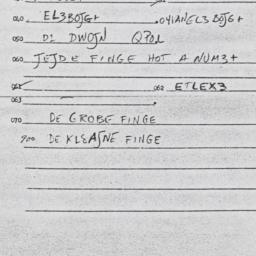 040 EL3BOJG+ .04IANEL3 BOJG+
050 DI DWOJN QPOL
060 JEJDE FINGE HOT A NUM3+
061 062 ETLEX3
063
070 DE GROBE FINGE
900 DE KLEAJNE FINGE